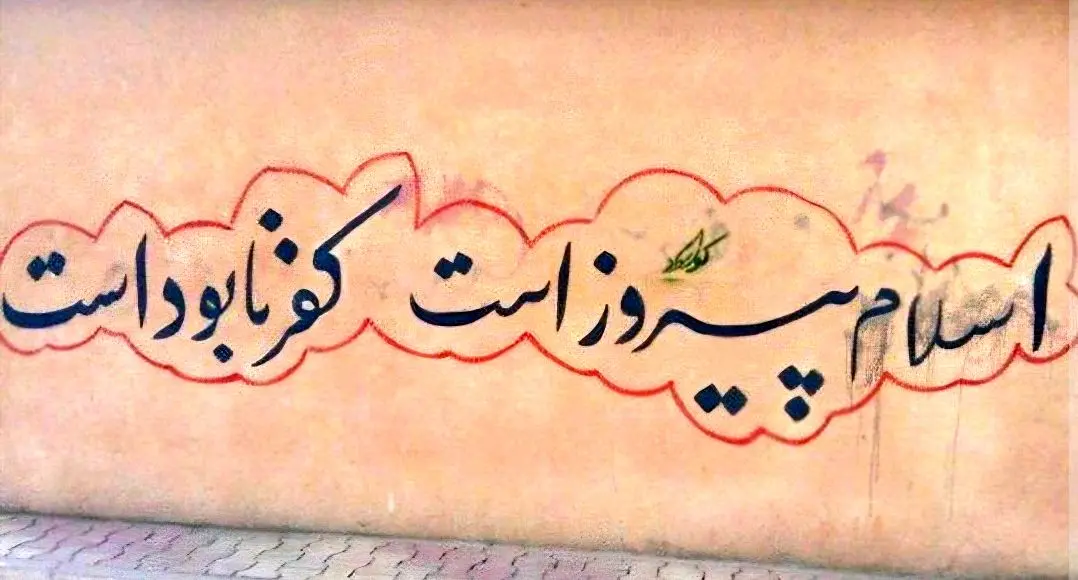 اسلام پیروز است کفر نابود است